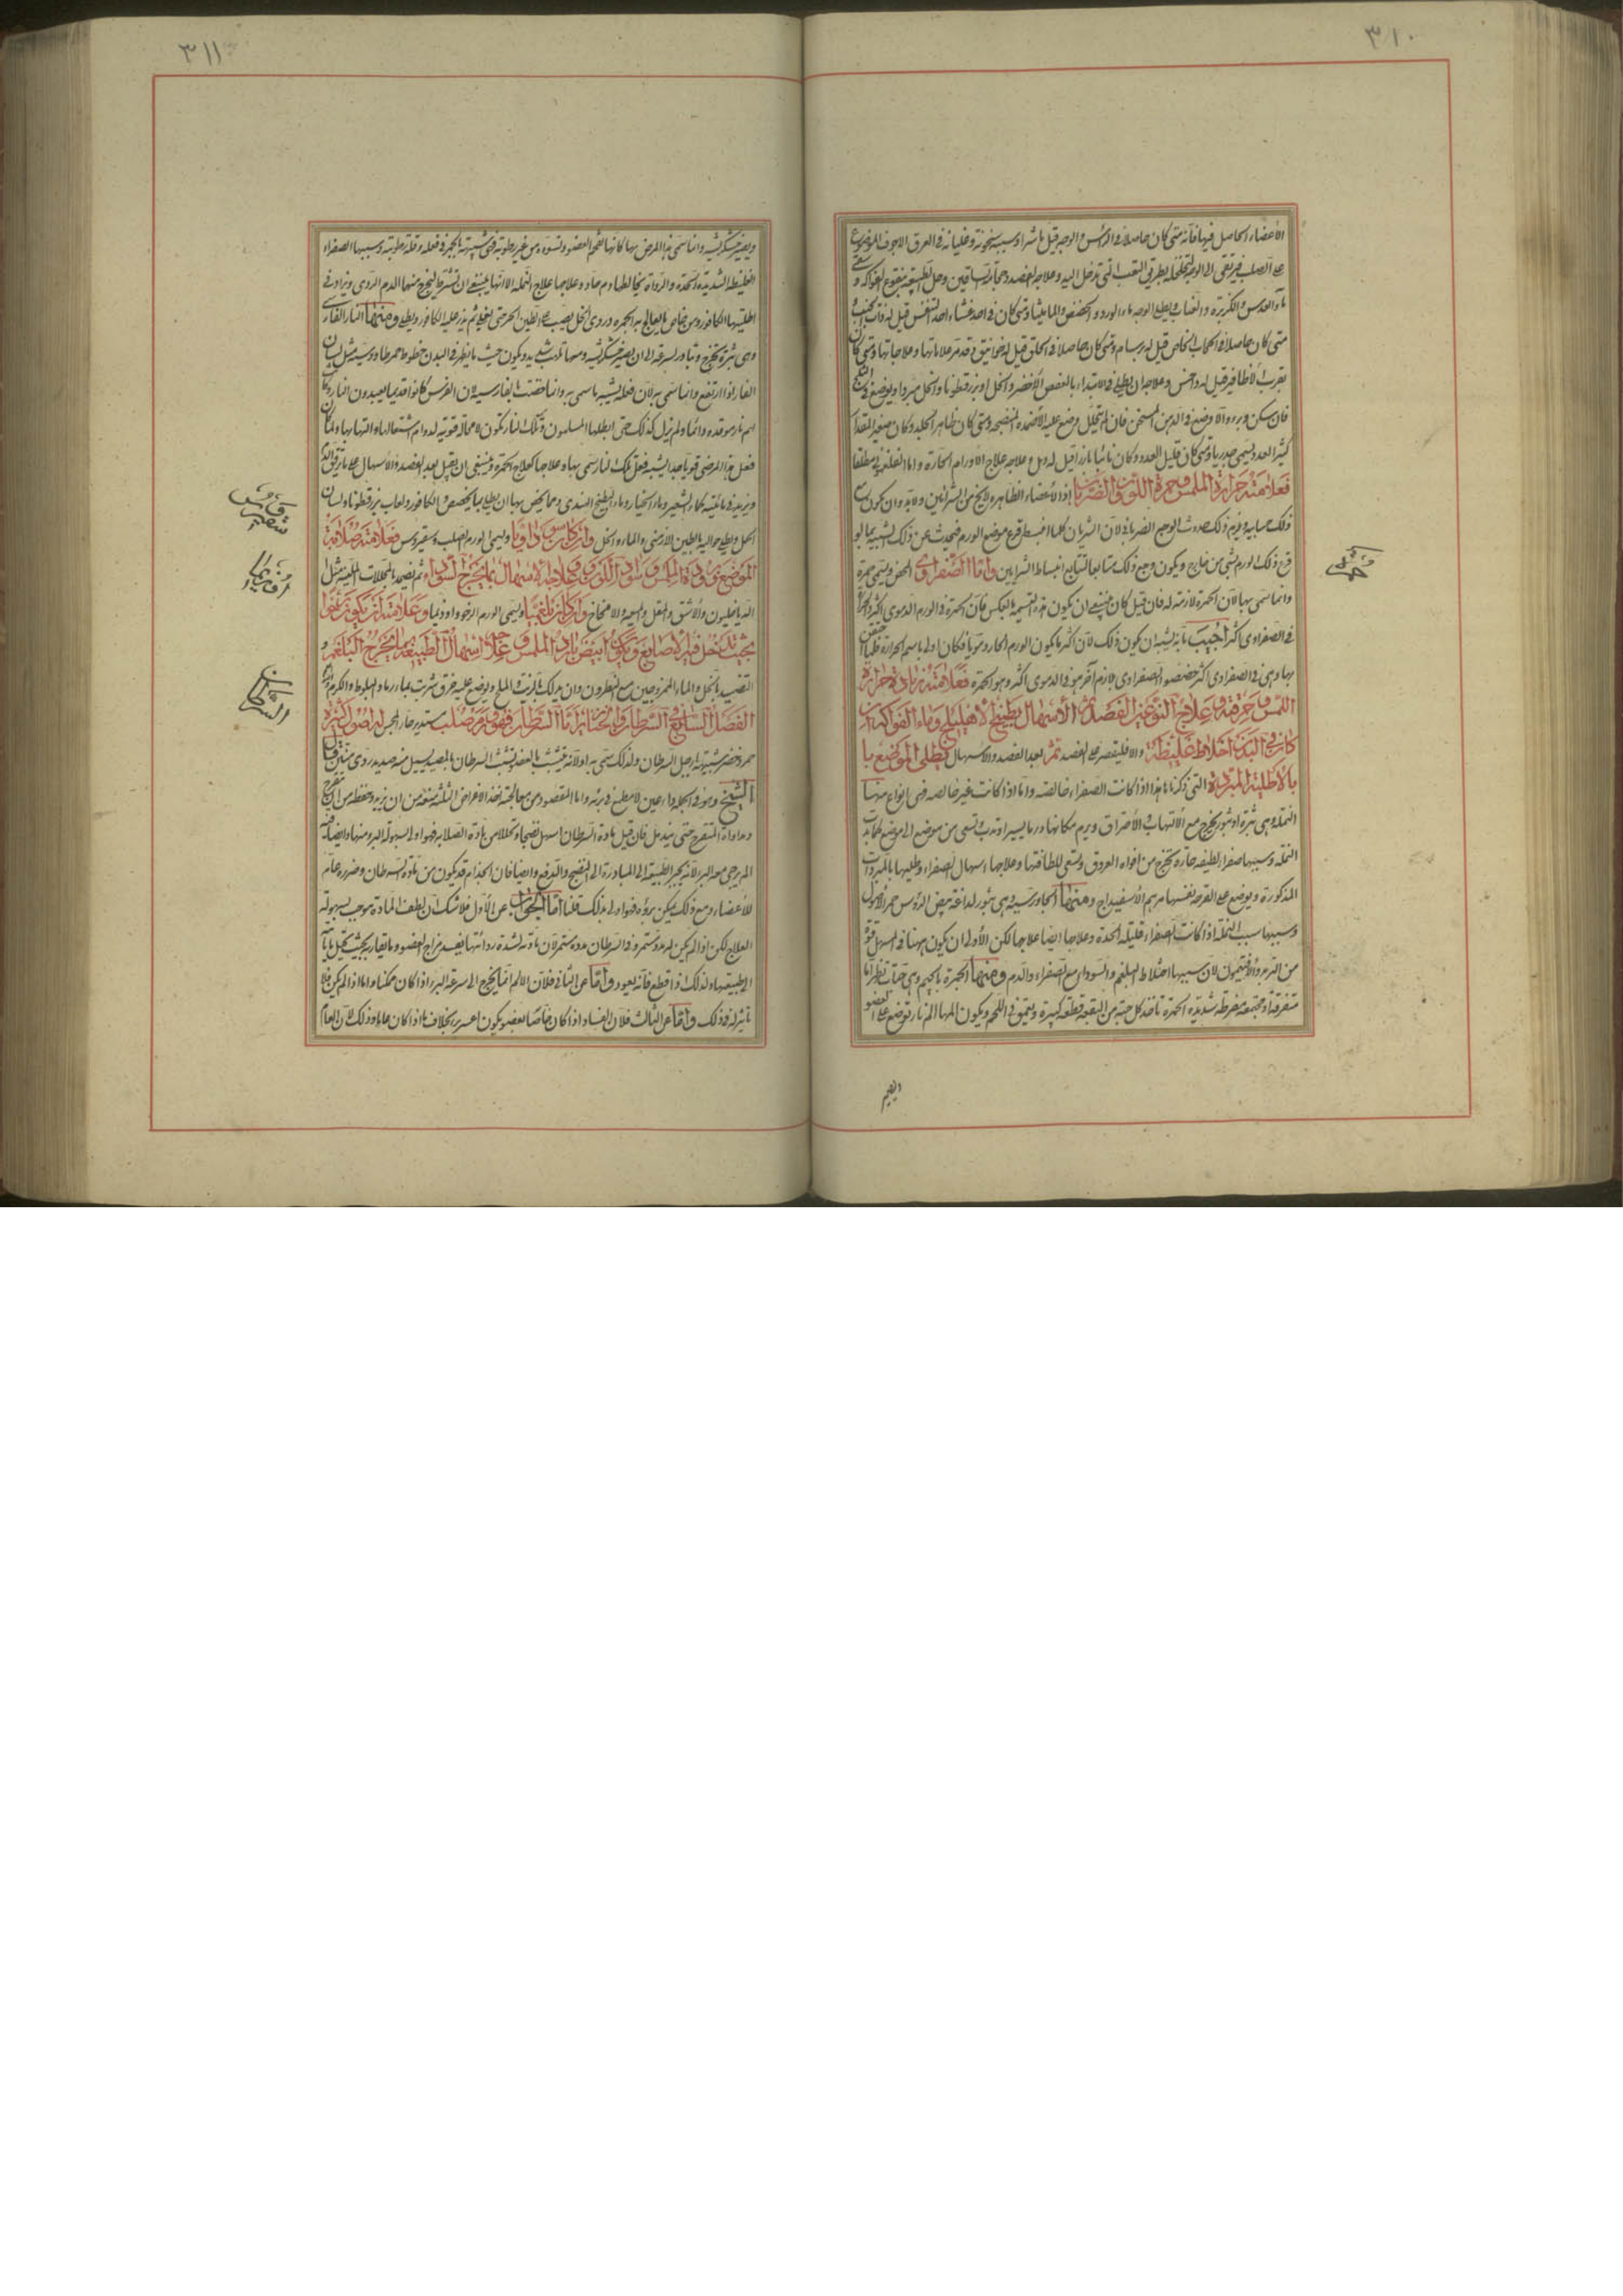 ٣١٠
الأعضاء الحاصل فيها فانه متى كان حاصلا فى الرأس والوجه قيل ماشرا وسببه سخونة وغليانه فى العرق الاجوف الموضوع
على الصلب فيرتقى الى الوجه
وعلاجه الفصد وحجامة الساقين وحل الطبيعة بنقوع الفواكه و
ماء العدس والكزبرة
متى كان حاصلا فى الحجاب الخاص قيل له برسام ومتى كان حاصلا فى الحلق قيل له خوانيق وقد مر علاماتها وعلاجاتها ومتى كان
بقرب الأظافير قيل له داحس وعلاجه ان يطلى فى الابتداء بالعفص الأخضر والخل او بزرقطونا والخل مبردا ويوضع فى الثلج
فان سكن وبرء والا وضع فى الدهن المسخن فان لم يتحلل وضع عليه الأضمدة المنضجة ومتى كان ظاهر الجلد وكان صغير المقدار
كثير العدد ويسمى جدريا ومتى كان قليل العدد وكان ناتيا بارزا قيل له دمل وعلاجه علاج الاورام الحارة واما الفلغمونى مطلقا
فعلامته حرارة الملمس وحمرة اللون والضربان اذ الأعضاء الظاهرة لا يخ من الشرائين ولا بد وان يكون مع
ذلك عصبانية ويلزم ذلك حدوث الوجع الضربانى لان الشريان كلما انبسط قرع موضع الورم فيحدث عن ذلك الشبيه بما لو
قرع ذلك الورم بشئ من خارج ويكون وجع ذلك متتابعا لتتابع انبساط الشرايين واما الصفراوى المحض ويسمى حمرة
وانما سمى بها لان الحمرة لازمة له فان قيل كان ينبغى ان يكون هذه التسمية بالعكس فان الحمرة فى الورم الدموى اكثر والحرارة
فى الصفراوى اكثر اجيب بانه يشبه ان يكون ذلك لان اكثر ما يكون الورم الحار دمويا فكان اولى باسم الحرارة
بها وهى فى الصفراوى اكثر خصصوا الصفراوى بلازم آخر هو فى الدموى اكثر وهو الحمرة فعلامته زيادة حرارة
اللمس وحرقة وعلاج النوعين الفصد ثم الأسهال بطبيخ الاهليلج وماء الفواكه ان
كان فى البدن اخلاط غليظة والا فليقتصر على الفصد ثم بعد الفصد والاسهال يطلى الموضع با
بالأطلية المبردة التى ذكرنا هذا اذا كانت الصفراء خالصة واما اذا كانت غير خالصة فهى انواع منها
النملة وهى بثرة او بثور يخرج مع الالتهاب والأحتراق ويرم مكانها ورما يسيرا وتدب وتسعى من موضع الى موضع كما يدب
النملة وسببها صفراء لطيفة حادة يخرج من افواه العروق وتسعى للطافتها وعلاجها اسهال الصفراء وطليها بالمبردات
المذكورة ويوضع على القرحة نفسها مرهم الأسفيداج ومنها الجاورسية وهى بثور لداغة بيض الرؤس حمر الأصول
وسببها سبب النملة اذا كانت الصفراء قليلة الحدة وعلاجها ايضا علاجها لكن الأولى ان يكون هيهنا فى المسهل قوة
من التربد والأفتيمون لان سببها اختلاط البلغم والسوداء مع الصفراء والدم ومنها الجمرة بالجيم وهى حبات تظهر اما
متفرقة او مجتمعة مفرطحة شديدة الحمرة تأخذ كل حبة من البقعة قطعة كبيرة ويتعمق فى اللحم ويكون المها الم نار توضع على العضو
حمره
٣١١
ويصير خشكريشة وانما سمى هذا المرض بها كانها تفحم العضو وتسوده من غير رطوبة فهى شبيهة بالجمر فى فعله وقلة رطوبته وسببها الصفراء
الغليظة الشديدة الحدة والرداة
وعلاجها علاج النملة الا انها ينبغى ان تشرط ليخرج منها الدم الردى ويزاد فى
اطليتها الكافور
ومنها النار الفارسى
وهى بثرة يخرج
الى ان يصير خشكريشة ومعها تلهب شديد ويكون حيث يظهر فى البدن خطوط حمر
مثل لسان
النار اذا ارتفع وانما سمى به لان فعله يشبه باسمى به وانما خصت بالفارسية لان الفرس كانوا قديما يعبدون النار وكان
لهم نار موقدة دائما ولم يزل كذلك حتى ابطلها المسلمون وتلك النار تكون لا محالة قوية لدوام اشتعالها والتهابها ولما كان
فعل هذا المرض قويا جدا لشبه فعل تلك النار سمى بها وعلاجها كعلاج الجمرة وينبغى ان يقبل بعد الفصد والأسهال على ما يرقق الدم
ويزيد فى مائيته كماء الشعير وماء الخيار وماء البطيخ الهندى ومما يخص بها ان يطلى بما يخصص والكافور ولعاب بزرقطونا ولسان
الحمل ويطلى حواليه بالطين الأرمنى والماء والخل وان كان سوداويا ويسمى الورم الصلب وسقيروس فعلامته صلابة
الموضع وبرودة الملمس وسواد اللون وعلاجه الأسهال بما يخرج السوداء ثم تضميد بالمحللات الملينة مثل
الدياخيلون والأشق والمقل والميعة والامخاخ وان كان بلغميا ويسمى الورم الرخو واوذيما وعلامته ان يكون رخوا
بحيث يدخل فيه الأصابع ويكون ابيض بارد الملمس وعلاجه اسهال الطبيعة بما يخرج البلغم و
التضميد بالخل والماء الممزوجين مع النطرون وان يدلك بالزيت والملح ويوضع عليه خرق شربت بماء رماد البلوط والكرم
الفصل السابع فى السرطان والخنازير اما السرطان فهو ورم صلب مستدير حار المجس له اصول كثيرة
حمر وخضر شبيهة بارجل السرطان ولذلك سمى به او لانه يتشبث بالعضو تشبث السرطان بما يصيده يسيل منه صديد ردى منتن قال
الشيخ وهو فى الجملة داء عين لا مطمع فى برئه واما المقصود من معالجته
من ان يزيد وحفظه من ان يتقرح
ومداواة المتقرح حتى يندمل فان قيل مادة السرطان اسهل نضجا وتحللا من مادة الصلابة فهو اولى بسهولة البرء منها
لانه يحير الطبيعة الى المبادرة الى النضج والدفع وايضا فان الجذام قد يكون من مادة السرطان وضرره عام
للأعضاء ومع ذلك يمكن برؤه فهو اولى بذلك قلنا اما الجواب عن الأول فلا شك ان لطف المادة موجب لسهولة
العلاج لكن اذا لم يكن له مدد مستمر وفى السرطان مدده مستمر لان مادته لشدة ردائتها يفسد مزاج العضو وما يقاربه بحيث يحيل ما يأتيه
الى طبيعتها ولذلك اذا قطع فانه يعود واما عن الثانى فلان الالم انما يحوج الى سرعة البرء اذا كان ممكنا واما اذا لم يكن فلا
تأثير له فى ذلك واما عن الثالث فلان الفساد اذا كان خاصا بعضو يكون اعسر برء بخلاف ما اذا كان عاما وذلك لان العام
سقيروس
اوذيما
السرطان